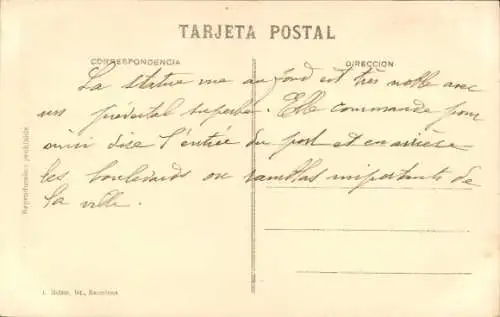 TARJETA POSTAL
CORRESPONDENCIA
DIRECCION
La statue vue au fond est très noble avec
un piédestal superbe. Elle commande pour
ainsi dire l'entrée du port et en arrière
les boulevards ou ramblas importants de
la ville.
Reproducción prohibida
Barcelona